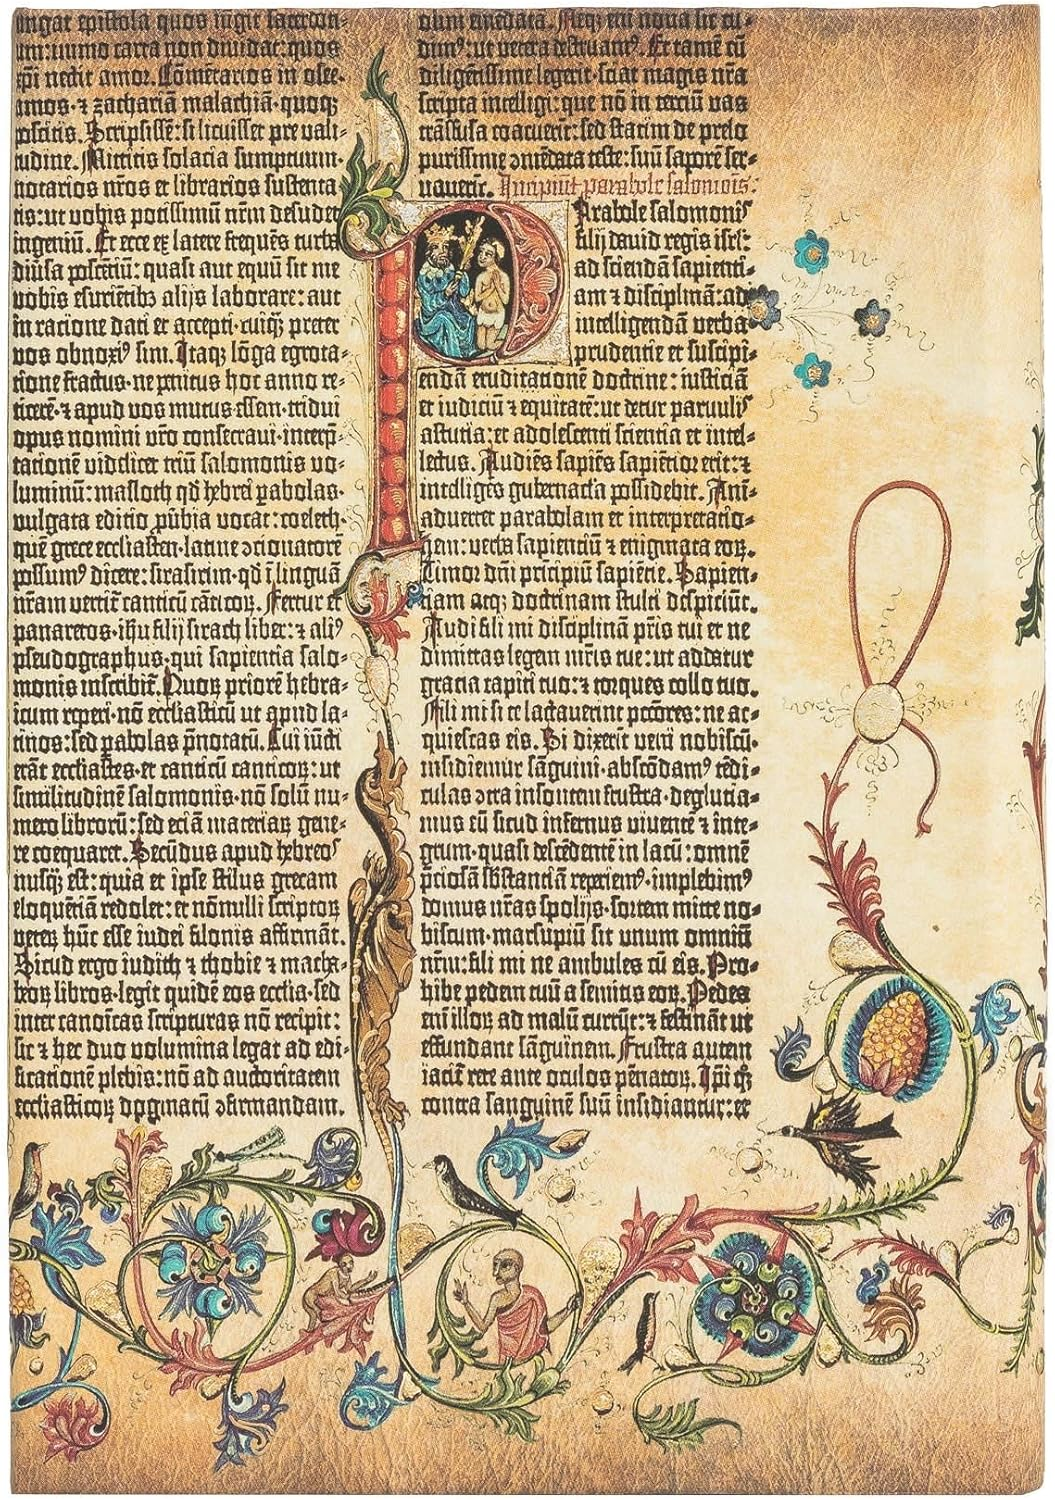 ungat epistola quos iungit sacerdoti-
um: immo carta non dividat: quos
xpi nectit amor. Cōmētarios in osee.
amos. ⁊ zachariā malachiā. quoqꝫ
poscitis. Scripsissē: si licuisset pre vali-
tudine. Mittitis solacia sumptuum.
notarios nr̄os et librarios sustenta-
tis: ut vobis potissimū nr̄m desudet
ingeniū. Et ecce ex latere frequēs turba
diūsa poscētiū: quasi aut equū sit me
vobis esuriētibꝫ alijs laborare: aut
in ratione dati et accepti. cuiqꝫ preter
vos obnoxiꝰ sim. Itaqꝫ lōga egrota-
tione fractus. ne penitus hoc anno re-
ticerē. ⁊ apud vos mutus essem. tridui
opus nomini vr̄o consecravi. interp̄-
tationē videlicet triū salomonis vo-
luminū: masloth qd̄ hebrei ꝑabolas.
vulgata editio ꝓv̄bia vocat: coeleth.
quē grece ecclīasten. latine ↄtionatorē
possumꝰ dicere: sirasirim. qd̄ ī linguā
nr̄am vertit̄ canticū cāticoꝝ. Fertur et
panaretos. ih̄u filij sirach liber: ⁊ aliꝰ
pseudographus. qui sapientia salo-
monis inscribit̄. Quoꝝ priorē hebra-
icum reperi. nō ecclīasticū ut apud la-
tinos: sed ꝑabolas p̄notatū. Cui iūcti
erāt ecclīastes. et canticū canticoꝝ: ut
similitudinē salomonis. nō solū nu-
mero librorū: sed eciā materiaꝝ gene-
re coequaret. Secūdus apud hebreos
nusqꝫ est: quia et ipse stilus grecam
eloquētiā redolet: et nōnulli scriptoꝝ
veteꝝ hūc esse iudei filonis affirmāt.
Sicud ergo iudith ⁊ thobie ⁊ macha-
beoꝝ libros. legit quidē eos ecclīa. sed
inter canoīcas scripturas nō recipit:
sic ⁊ hec duo volumina legat ad edi-
ficationē plebis: nō ad auctoritatem
ecclīasticoꝝ dogmatū ↄfirmandam.
olim emēdata. Neqꝫ eni nova sic cu-
dimꝰ: ut vetera destruamꝰ. Et tamē cū
diligētissime legerit. sciat magis nr̄a
scripta intelligi: que nō in terciū vas
trāsfusa coacuerit: sed statim de prelo
purissime ↄmēdata teste: suū saporē ser-
vaverit. Incipiūt parabole salomōis:
Parabole salomonis
filij david regis isrl̄:
ad sciendā sapienti-
am ⁊ disciplinā: ad
intelligendā verba
prudentie et suscipi-
endā eruditationē doctrine: iusticiā
et iudiciū ⁊ equitatē: ut detur parvulis
astutia: et adolescenti scientia et intel-
lectus. Audiēs sapiēs sapiētior erit: ⁊
intelligēs gubernacl̄a possidebit. Ani-
advertet parabolam et interpretatio-
nem: verba sapientiū ⁊ enigmata eoꝝ.
Timor dn̄i pricipiū sapiētie. Sapien-
tiam atqꝫ doctrinam stulti despiciūt.
Audi fili mi disciplinā pr̄is tui et ne
dimittas legem mr̄is tue: ut addatur
gracia capiti tuo: ⁊ torques collo tuo.
Fili mi si te lactaverint pctōres: ne ac-
quiescas eis. Si dixerit veni nobiscū.
insidiemur sāguini. abscōdamꝰ tēdi-
culas ↄtra insontem frustra. deglutia-
mus eū sicud infernus viventē ⁊ inte-
grum. quasi descēdentē in lacū: omnē
p̄ciosā sb̄stantiā reperiemꝰ. implebimꝰ
domus nr̄as spolijs. sortem mitte no-
biscum. marsupiū sit unum omniū
nr̄m: fili mi ne ambules cū eis. Pro-
hibe pedem tuū a semitis eoꝝ. Pedes
enī illoꝝ ad malū currūt: ⁊ festināt ut
effundant sāguinem. Frustra autem
iacit̄ rete ante oculos pēnatoꝝ. Ip̄i qꝫ
contra sanguinē suū insidiantur: et